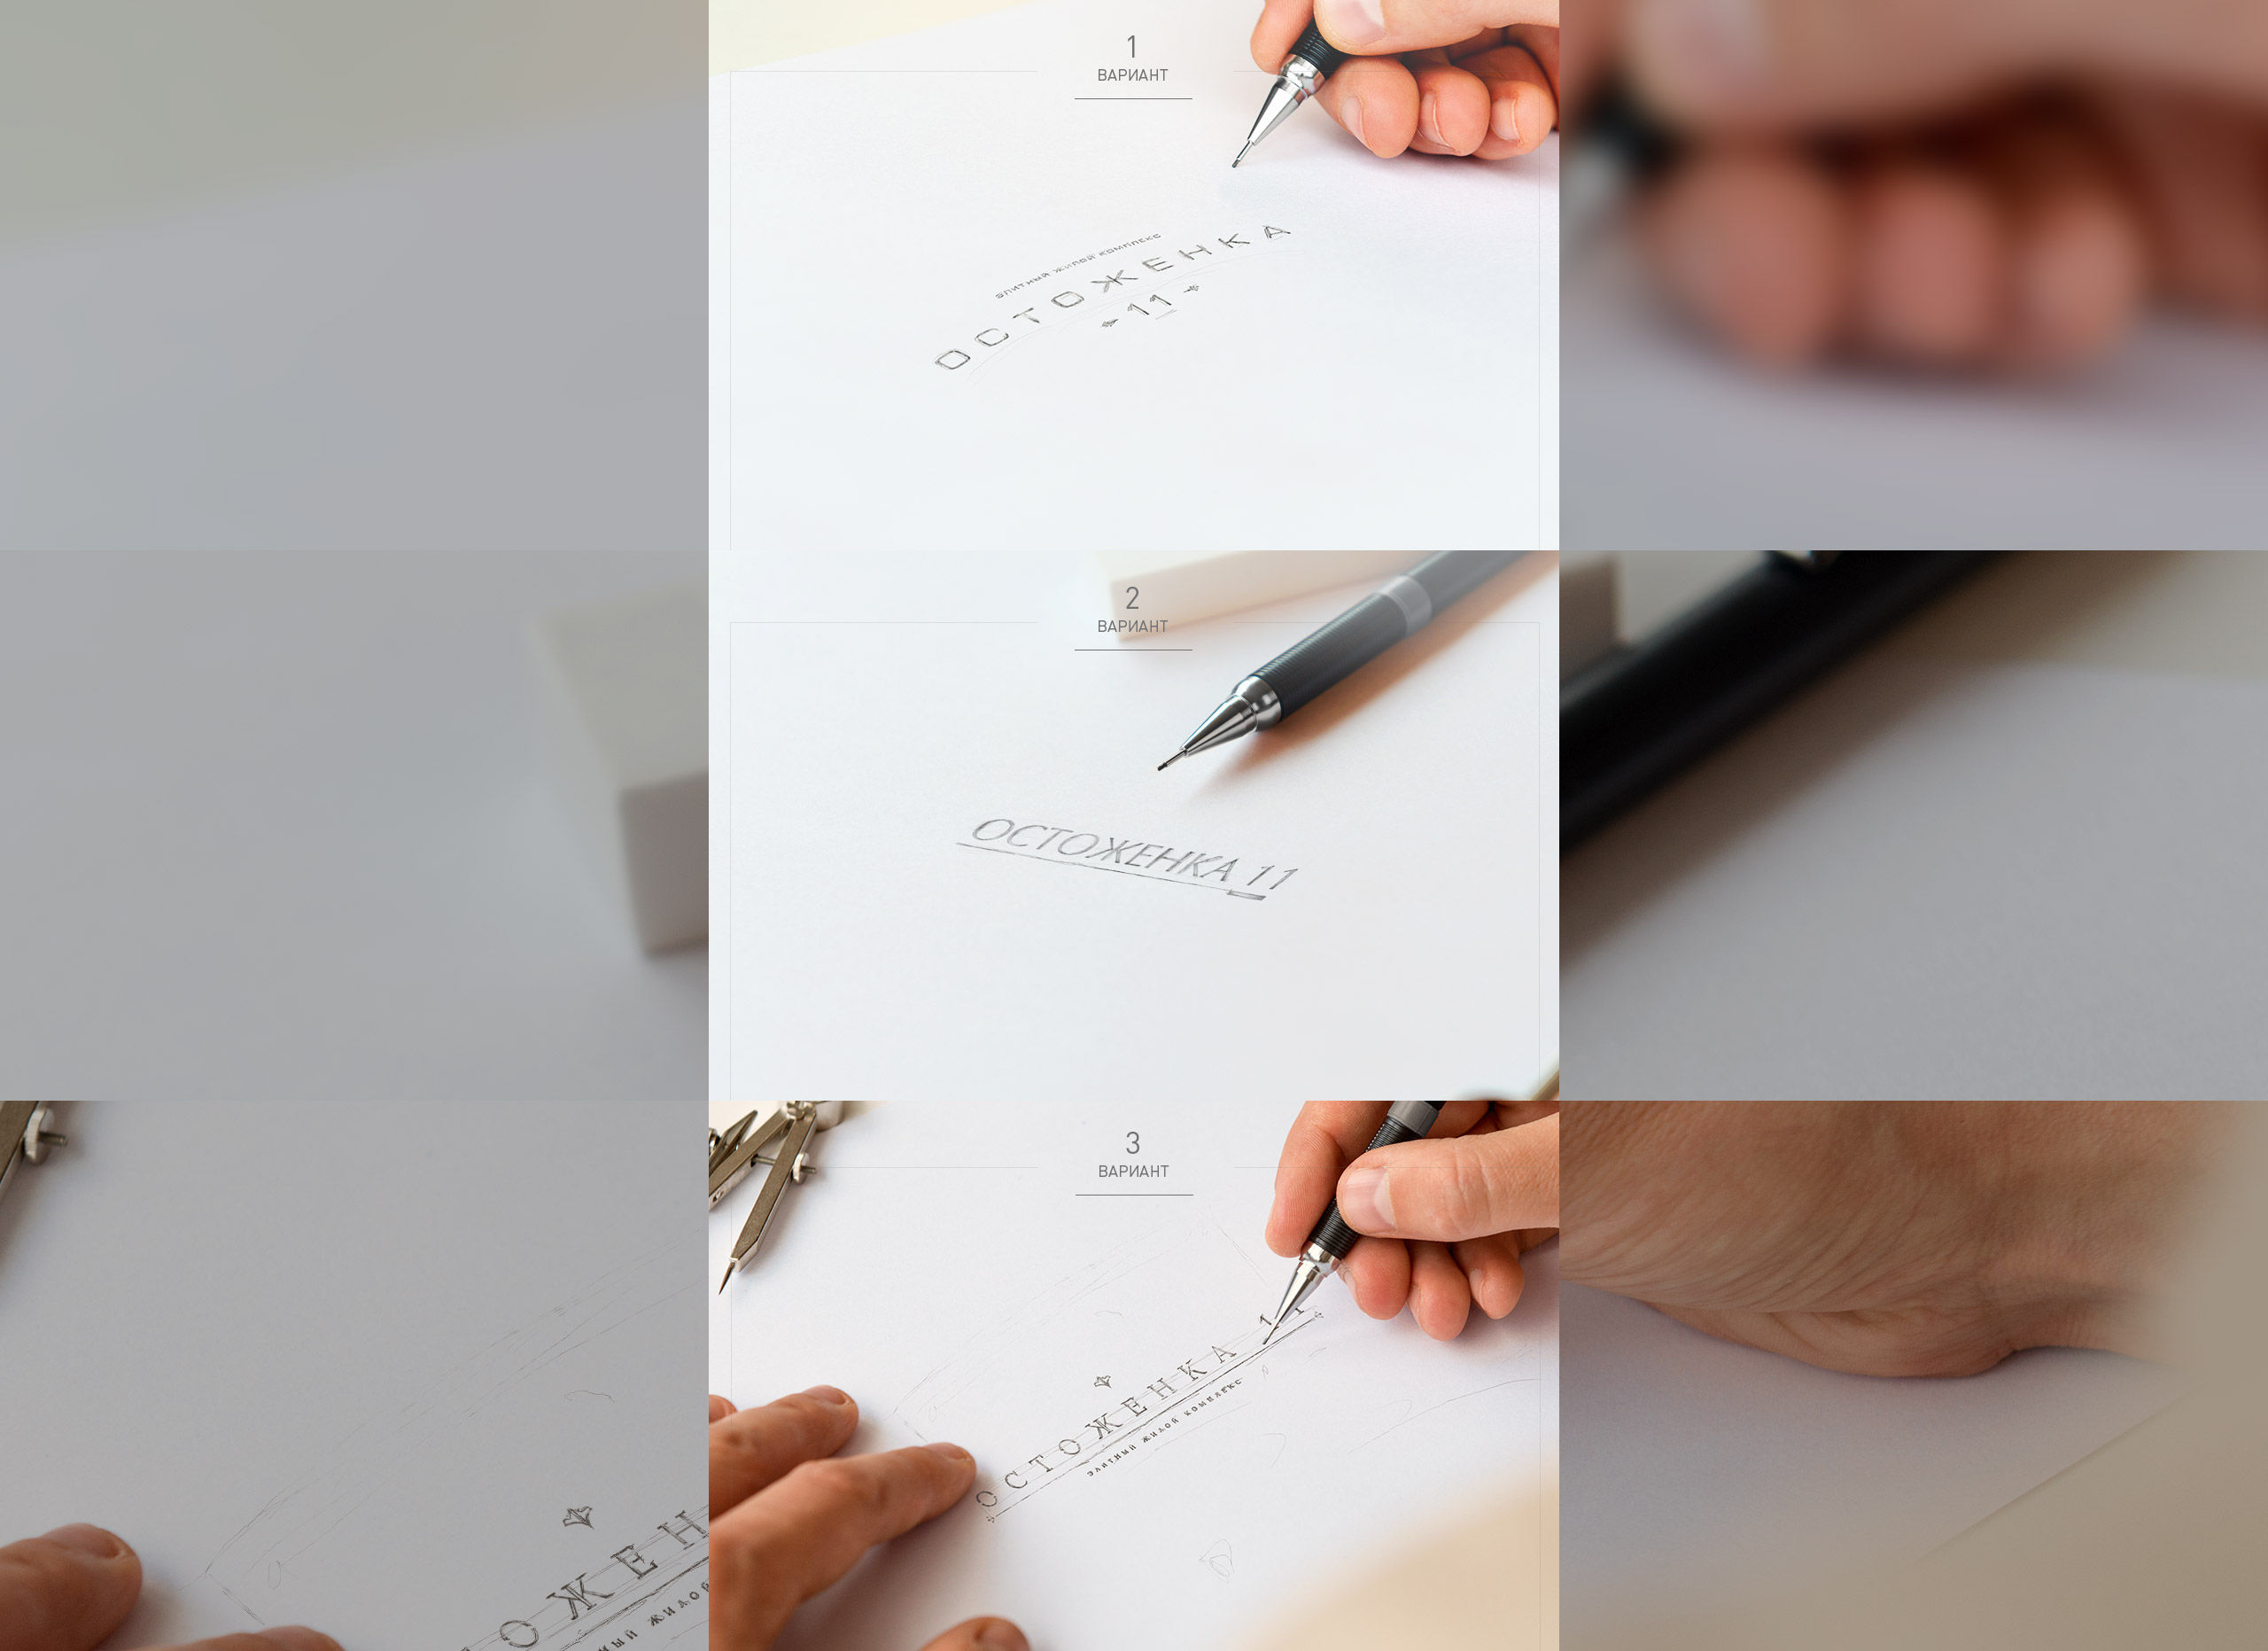 1
ВАРИАНТ
ЭЛИТНЫЙ ЖИЛОЙ КОМПЛЕКС
ОСТОЖЕНКА
11
2
ВАРИАНТ
ОСТОЖЕНКА 11
3
ВАРИАНТ
ОСТОЖЕНКА 11
ЭЛИТНЫЙ ЖИЛОЙ КОМПЛЕКС
ОЖЕН
НЫЙ ЖИЛОЙ